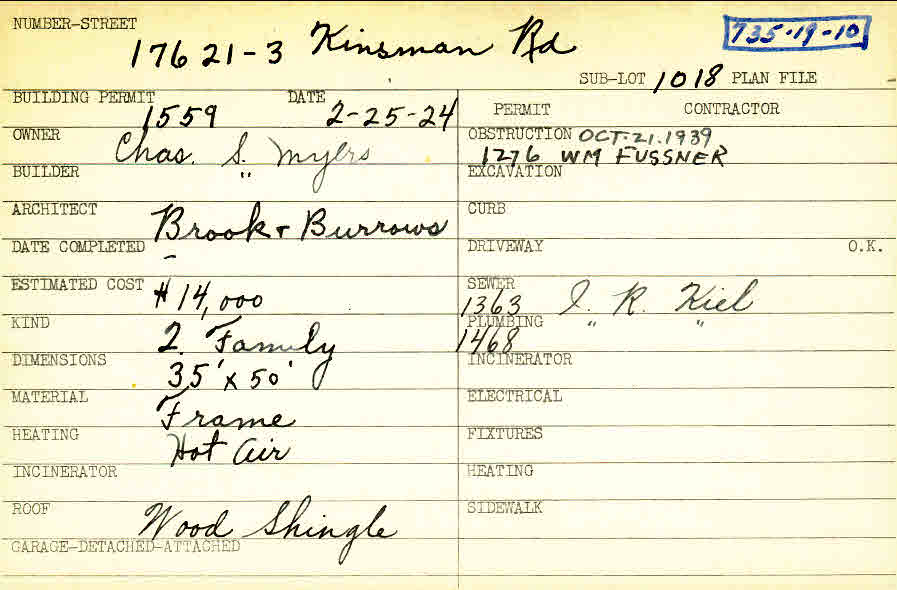 NUMBER-STREET
17621-3 Kinsman Rd
735-19-10
SUB-LOT 1018 PLAN FILE
BUILDING PERMIT DATE
1559 2-25-24
OWNER
Chas. S. Myers
BUILDER "
ARCHITECT
Brook & Burrows
DATE COMPLETED -
ESTIMATED COST
$14,000
KIND
2 Family
DIMENSIONS
35' x 50'
MATERIAL
Frame
HEATING
Hot Air
INCINERATOR
ROOF
Wood Shingle
GARAGE-DETACHED-ATTACHED
PERMIT CONTRACTOR
OBSTRUCTION OCT. 21. 1939
1276 WM FUSSNER
EXCAVATION
CURB
DRIVEWAY O.K.
SEWER
1363 I. R. Kiel
PLUMBING " "
1468
INCINERATOR
ELECTRICAL
FIXTURES
HEATING
SIDEWALK